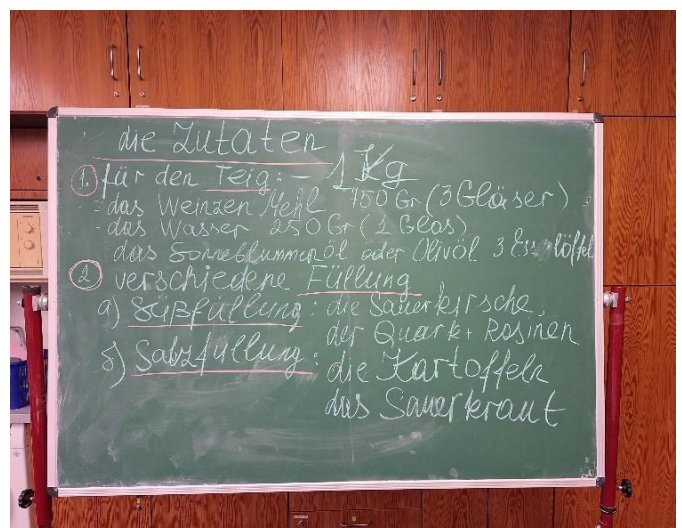 die Zutaten
1. für den Teig: – 1 Kg
- das Weinzen Mehl 450 Gr (3 Gläser)
- das Wasser 250 Gr (1 Glas)
das Sonneblummenöl oder Olivöl 3 Esslöffel
2 verschiedene Füllung
a) Süßfüllung: die Sauerkirsche,
der Quark + Rosinen
б) Salzfüllung: die Kartoffeln
das Sauerkraut